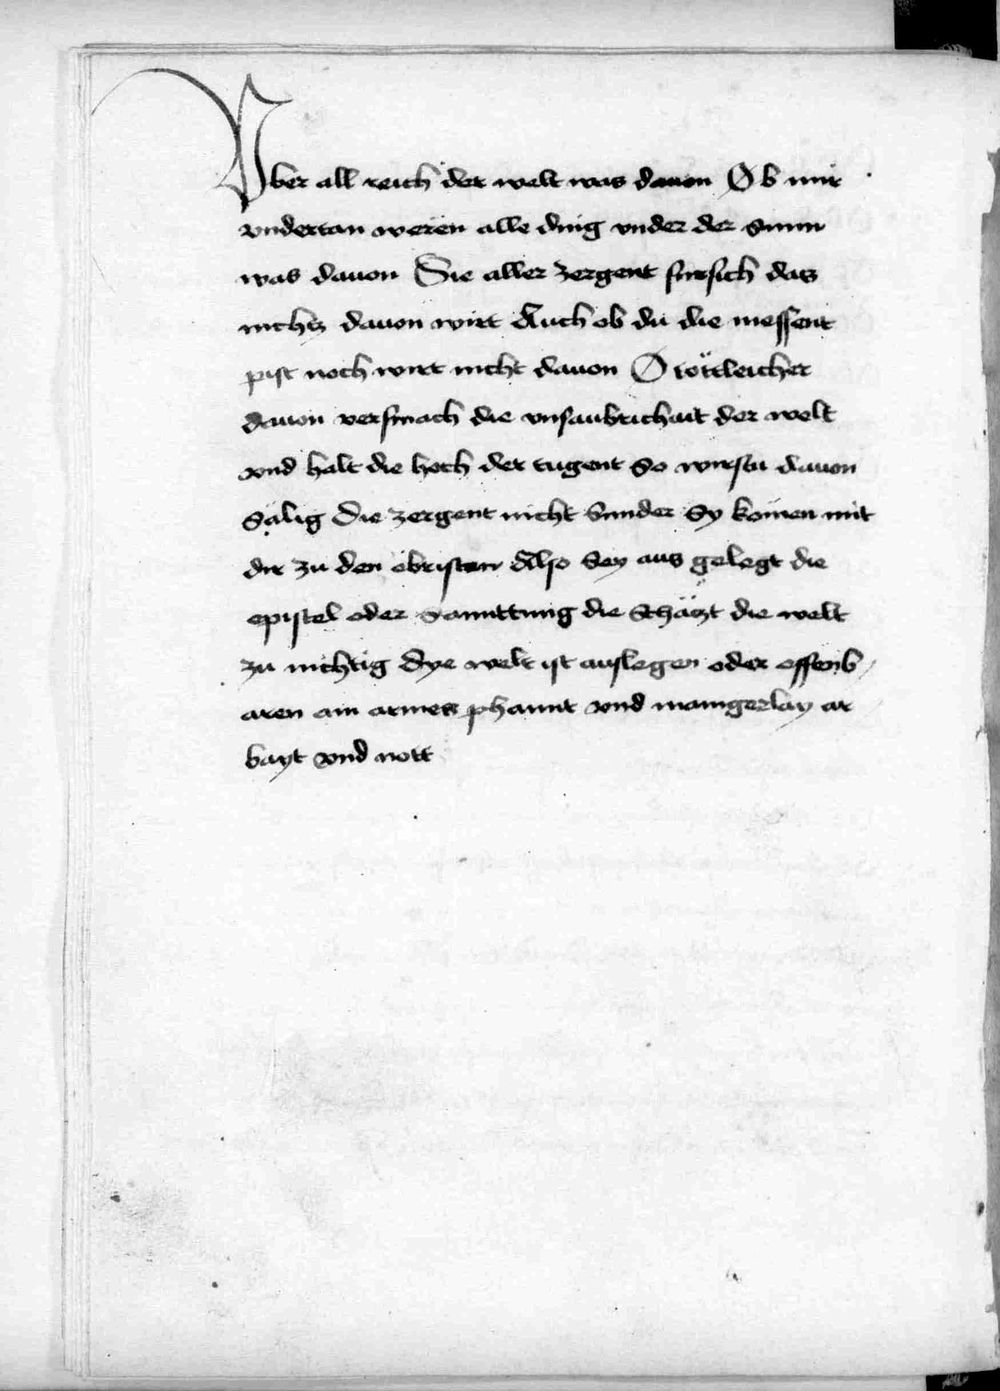 Vber all reich der welt was dauon Ob mir
vndertan weren alle ding vnder der sunn
was dauon Sie aller zergent fursich das
nichtz dauon wirt Auch ob du die messent
pist noch wirt nicht dauon O töttleicher
dauon versmach die vnsaubrichait der welt
vnd halt die hoch der tugent So wirstu dauon
Sälig Die zergent nicht Sunder Sy komen mit
dir zu den obristen Also Sey aus gelegt die
epistel oder die Schäczt die welt
zu nichtig Dye welt ist auslegen oder offenb
aren ain armes phannt vnd manigerlay ar
bayt vnd nott